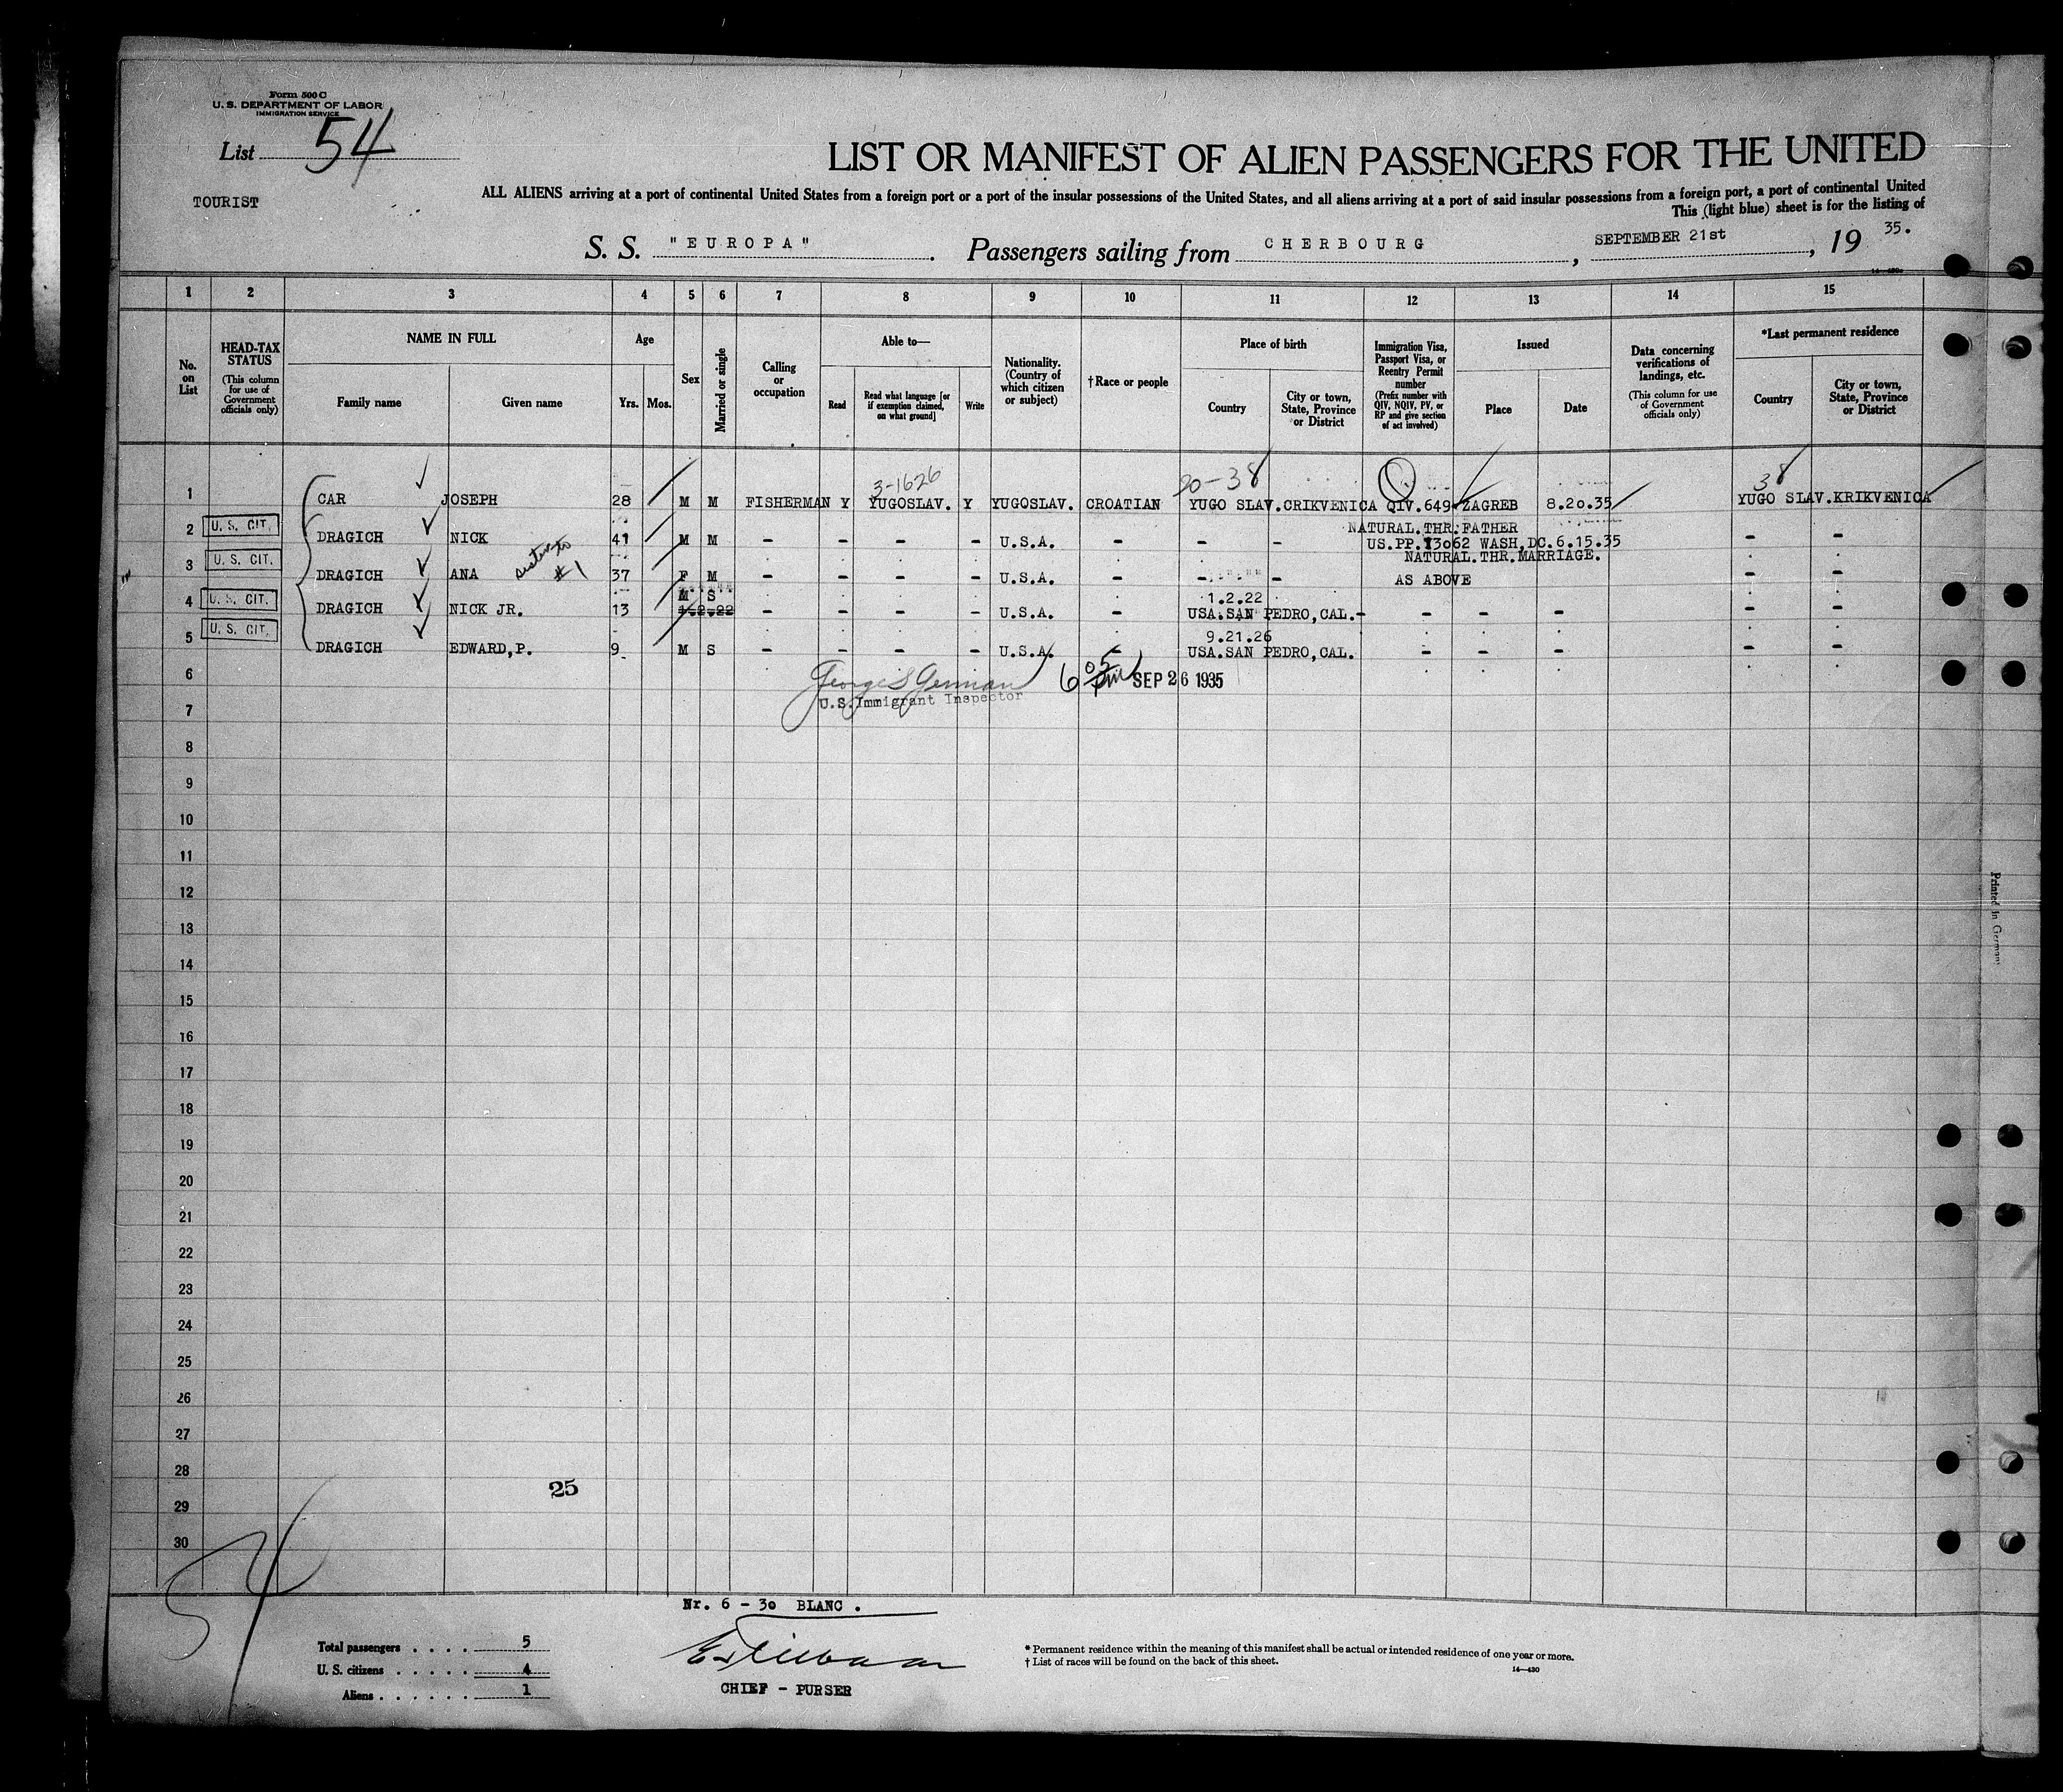 Form 500 C
U. S. DEPARTMENT OF LABOR
IMMIGRATION SERVICE
List 54
LIST OR MANIFEST OF ALIEN PASSENGERS FOR THE UNITED
TOURIST
ALL ALIENS arriving at a port of continental United States from a foreign port or a port of the insular possessions of the United States, and all aliens arriving at a port of said insular possessions from a foreign port, a port of continental United
This (light blue) sheet is for the listing of
S. S. "EUROPA". Passengers sailing from CHERBOURG, SEPTEMBER 21st, 19 35.
1 2 3 4 5 6 7 8 9 10 11 12 13 14 15
No. on List
HEAD-TAX STATUS (This column for use of Government officials only)
NAME IN FULL
Family name Given name
Age
Yrs. Mos.
Sex
Married or single
Calling or occupation
Able to—
Read
Read what language [or if exemption claimed, on what ground]
Write
Nationality. (Country of which citizen or subject)
†Race or people
Place of birth
Country
City or town, State, Province or District
Immigration Visa, Passport Visa, or Reentry Permit number (Prefix number with QIV, NQIV, PV, or RP and give section of act involved)
Issued
Place Date
Data concerning verifications of landings, etc. (This column for use of Government officials only)
*Last permanent residence
Country
City or town, State, Province or District
3-1626 38
1 CAR JOSEPH 28 M M FISHERMAN Y YUGOSLAV. Y YUGOSLAV. CROATIAN YUGO SLAV. CRIKVENICA QIV.649 ZAGREB 8.20.35 YUGO SLAV. KRIKVENICA
NATURAL.THR.FATHER
2 U. S. CIT. DRAGICH NICK 41 M M - - - - U.S.A. - - - US.PP.13062 WASH,DC.6.15.35 - -
sister to #1
NATURAL.THR.MARRIAGE.
3 U. S. CIT. DRAGICH ANA 37 F M - - - - U.S.A. - - - AS ABOVE - -
M S 1.2.22
4 U. S. CIT. DRAGICH NICK JR. 13 1.2.22 - - - - U.S.A. - USA.SAN PEDRO,CAL.- - - - - -
9.21.26
5 U. S. CIT. DRAGICH EDWARD,P. 9 M S - - - - U.S.A. - USA.SAN PEDRO,CAL. - - - - -
George S German 6 05 pm SEP 26 1935
U.S. Immigrant Inspector
6
7
8
9
10
11
12
13
14
15
16
17
18
19
20
21
22
23
24
25
26
27
28
25
29
30
54
Nr. 6 - 30 BLANC .
Total passengers . . . . 5
U. S. citizens . . . . . 4
Aliens . . . . . . 1
CHIEF - PURSER
* Permanent residence within the meaning of this manifest shall be actual or intended residence of one year or more.
† List of races will be found on the back of this sheet.
14—430
Printed in Germany